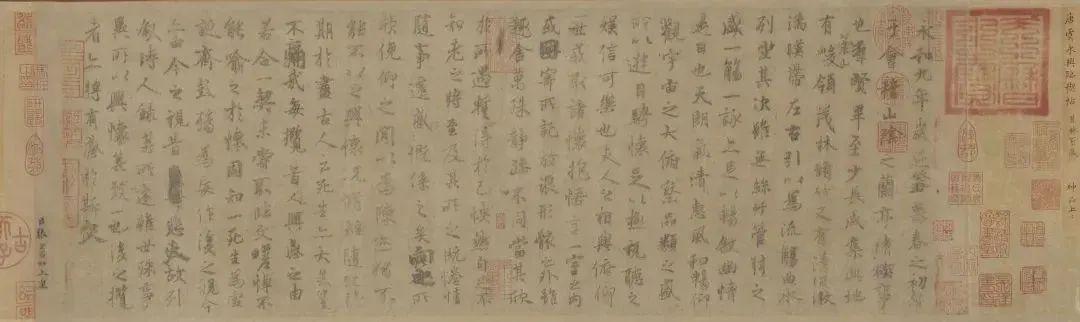 唐虞永興臨禊帖
永和九年歲在癸丑暮春之初會
于會稽山陰之蘭亭脩稧事
也羣賢畢至少長咸集此地
有崇山峻領茂林脩竹又有清流激
湍暎帶左右引以為流觴曲水
列坐其次雖無絲竹管弦之
盛一觴一詠亦足以暢敘幽情
是日也天朗氣清惠風和暢仰
觀宇宙之大俯察品類之盛
所以遊目騁懷足以極視聽之
娛信可樂也夫人之相與俯仰
一世或取諸懷抱悟言一室之內
或因寄所託放浪形骸之外雖
趣舍萬殊靜躁不同當其欣
於所遇蹔得於己怏然自足不
知老之將至及其所之既惓情
隨事遷感慨係之矣向之所
欣俛仰之閒以為陳迹猶不
能不以之興懷況脩短隨化終
期於盡古人云死生亦大矣豈
不痛哉每攬昔人興感之由
若合一契未嘗不臨文嗟悼不
能喻之於懷固知一死生為虛
誕齊彭殤為妄作後之視今
亦由今之視昔悲夫故列
敘時人錄其所述雖世殊事
異所以興懷其致一也後之攬
者亦將有感於斯文
臣張金界奴上進